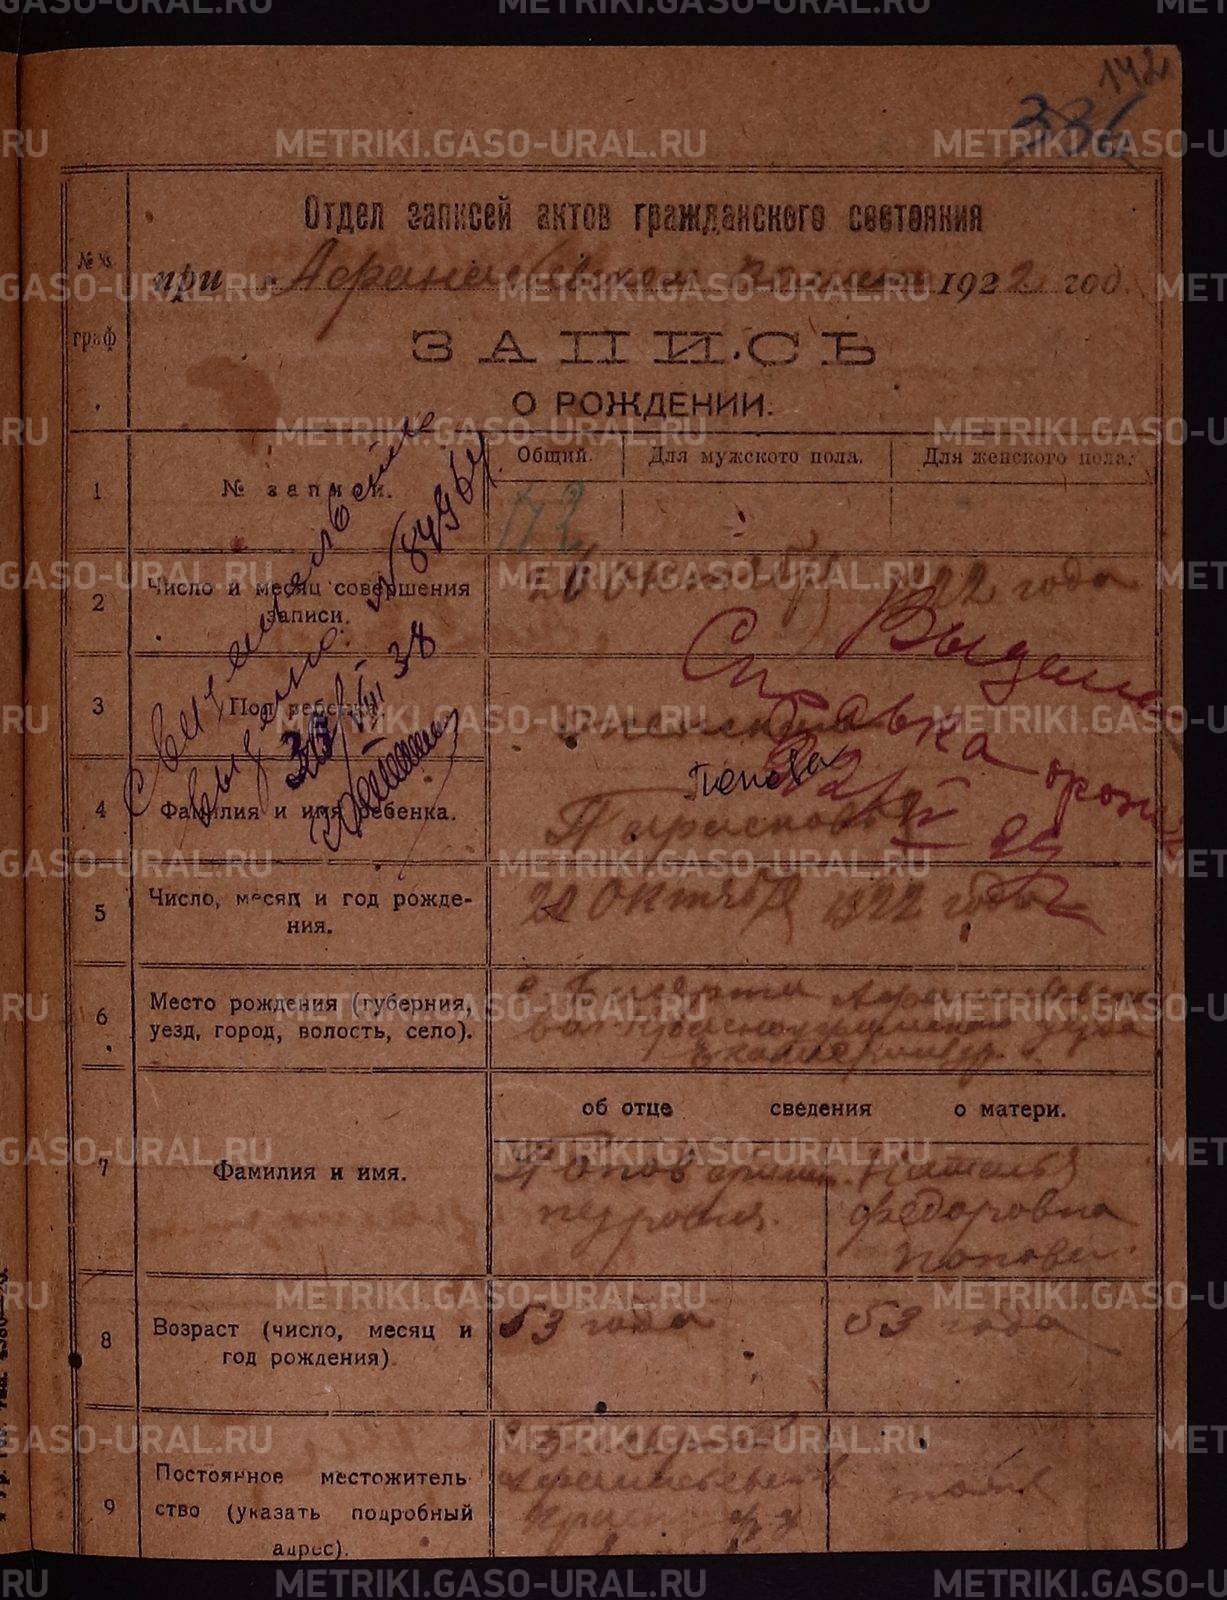 142
336
Отдел записей актов гражданского состояния
№№ граф
при Афанасьевском 1922 год.
ЗАПИСЬ
О РОЖДЕНИИ.
Общий. Для мужского пола. Для женского пола.
1 № записи. 172
2 Число и месяц совершения записи. 26 октября 1922 года
Свидетельство
выдано. №84964.
VIII 38
Выдана
Справка о рож
3 Пол ребенка. женский
4 Фамилия и имя ребенка. Попова
Парасковья
5 Число, месяц и год рождения. 21 октября 1922 года
6 Место рождения (губерния, уезд, город, волость, село). с Бисерти Афанасьевской
вол Красноуфимского уезда
Екатеринбур.
об отце сведения о матери.
7 Фамилия и имя. Попов
Наталья
Федоровна
Попова.
8 Возраст (число, месяц и год рождения). 53 года 53 года
9 Постоянное местожительство (указать подробный адрес).
METRIKI.GASO-URAL.RU